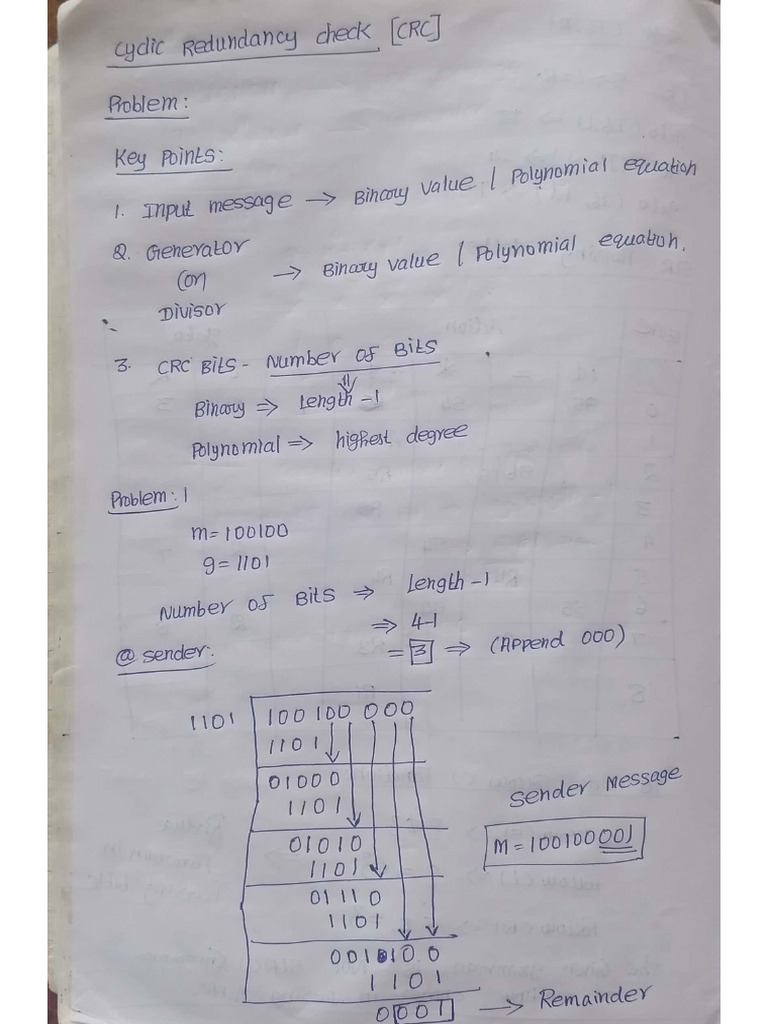 Cyclic Redundancy check [CRC]
Problem:
Key Points:
1. Input message → Binary value / Polynomial equation
2. Generator
(or)
Divisor
→ Binary value / Polynomial equation.
3. CRC Bits - Number of Bits
⇓
Binary ⇒ Length -1
Polynomial ⇒ highest degree
Problem: 1
m = 100100
g = 1101
Number of Bits ⇒ Length -1
⇒ 4-1
= 3 ⇒ (Append 000)
@ sender:
1101 100100 000
1101
01000
1101
01010
1101
01110
1101
0010100
1101
0001 → Remainder
Sender Message
m = 100100001